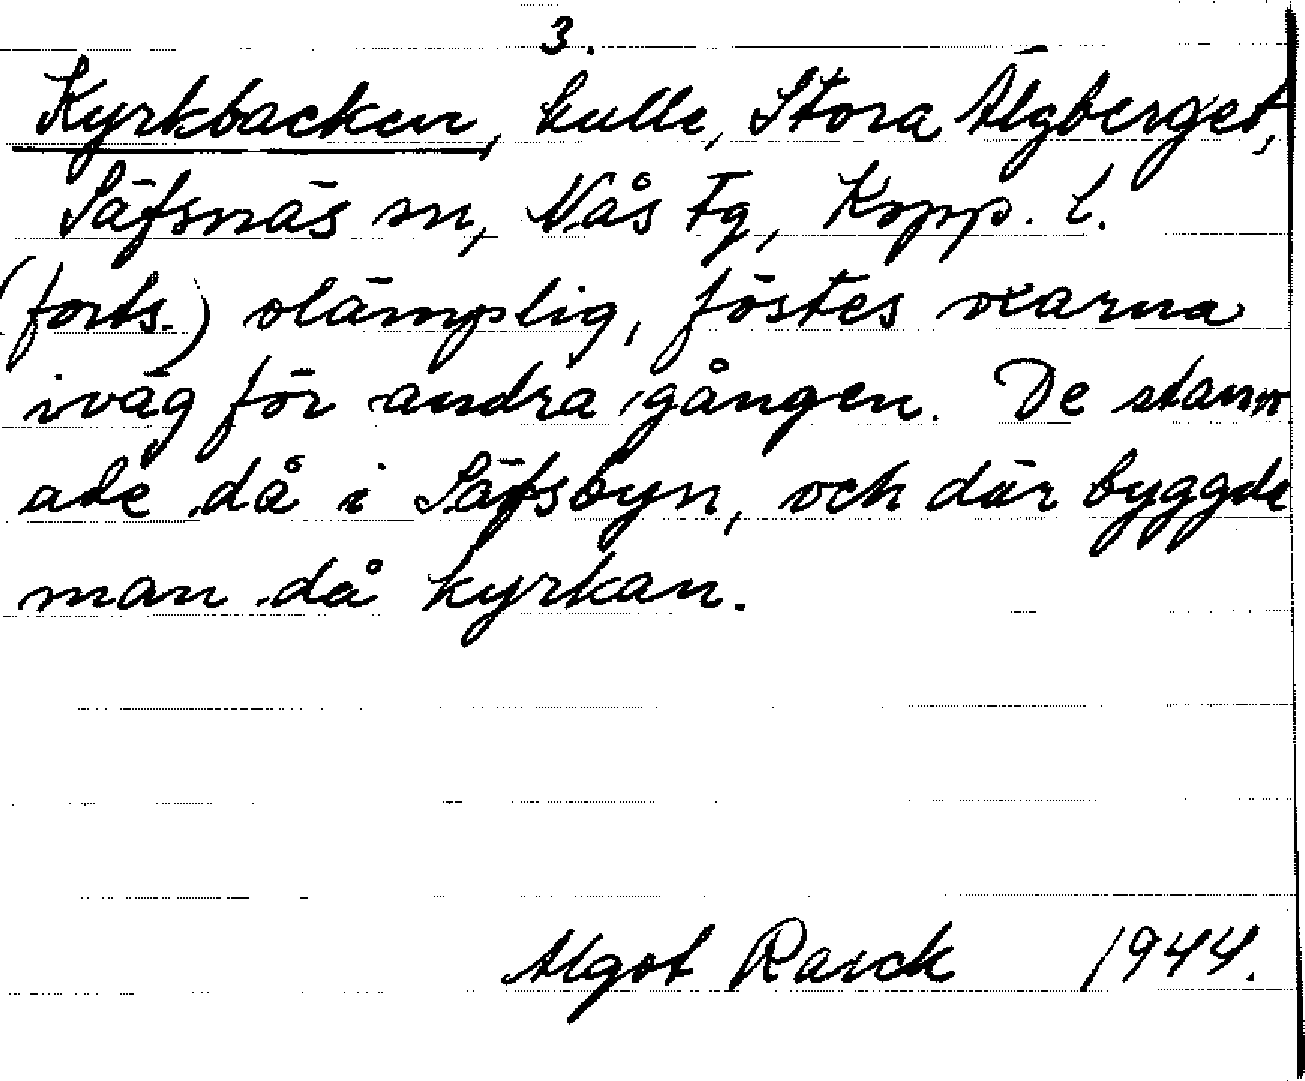 3.
Kyrkbacken, kulle, Stora Älgberget,
Säfsnäs sn, Nås tg, Kopp. l.
(forts.) olämplig, föstes oxarna
iväg för andra gången. De stann
ade då i Säfsbyn, och där byggde
man då kyrkan.
Algot Rasck 1944.